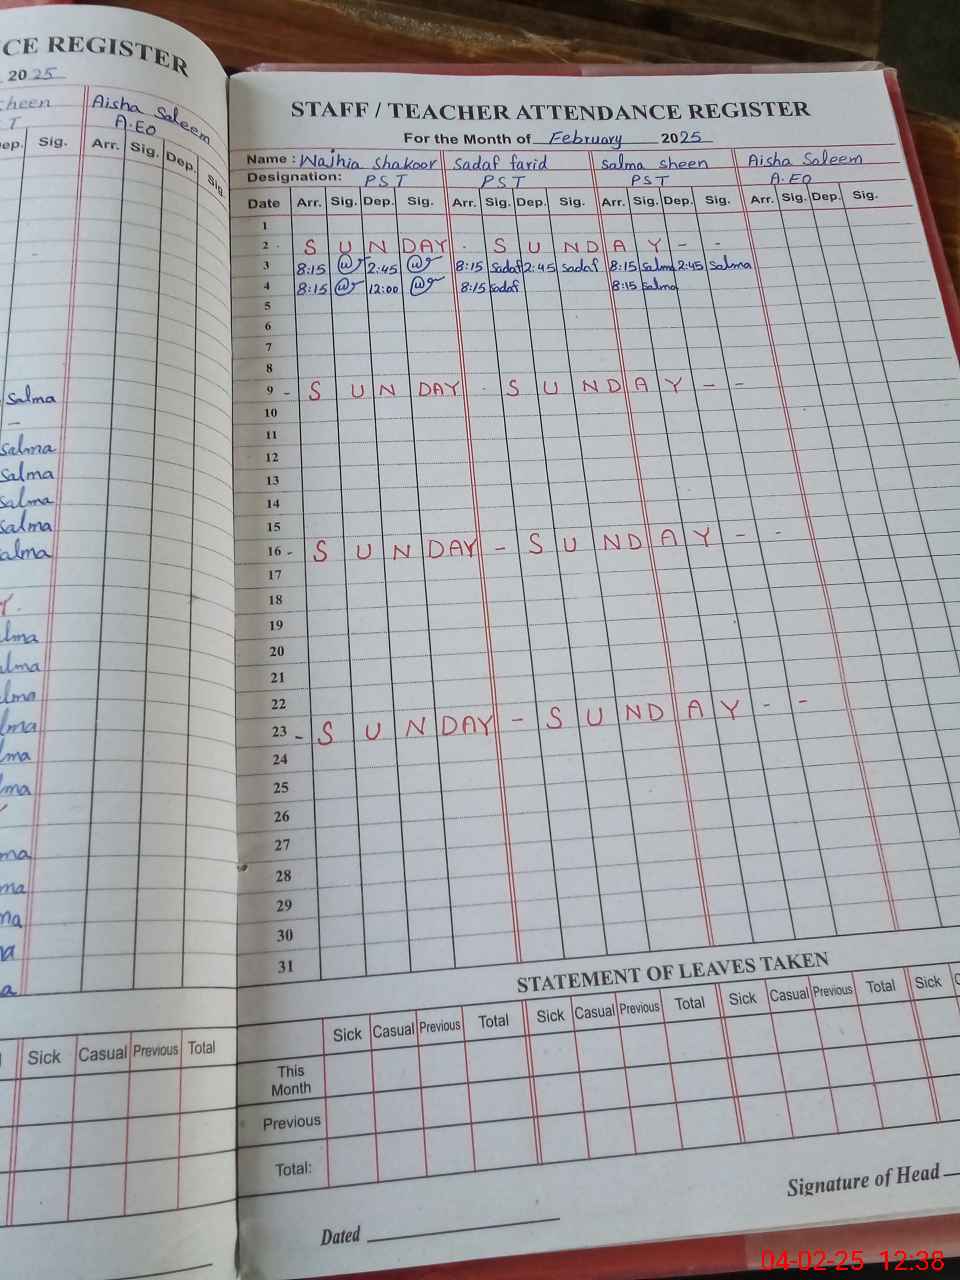 CE REGISTER
2025
sheen Aisha Saleem
T A.EO
Dep. Sig. Arr. Sig. Dep. Sig.
Salma
Salma
Salma
Salma
Salma
alma
Y.
alma
alma
alma
alma
ma
lma
ma
ma
ma
a
a
Sick Casual Previous Total
STAFF / TEACHER ATTENDANCE REGISTER
For the Month of February 2025
Name : Wajhia Shakoor Sadaf farid Salma sheen Aisha Saleem
Designation: PST PST PST A.EO
Date Arr. Sig. Dep. Sig. Arr. Sig. Dep. Sig. Arr. Sig. Dep. Sig. Arr. Sig. Dep. Sig.
1
2 - S U N DAY - S U N D A Y - -
3 8:15 2:45 8:15 Sadaf 2:45 Sadaf 8:15 Salma 2:45 Salma
4 8:15 12:00 8:15 Sadaf 8:15 Salma
5
6
7
8
9 - S U N DAY - S U N D A Y - -
10
11
12
13
14
15
16 - S U N DAY - S U N D A Y - -
17
18
19
20
21
22
23 - S U N DAY - S U N D A Y - -
24
25
26
27
28
29
30
31
STATEMENT OF LEAVES TAKEN
Sick Casual Previous Total Sick Casual Previous Total Sick Casual Previous Total Sick C
This Month
Previous
Total:
Signature of Head
Dated
04-02-25 12:38